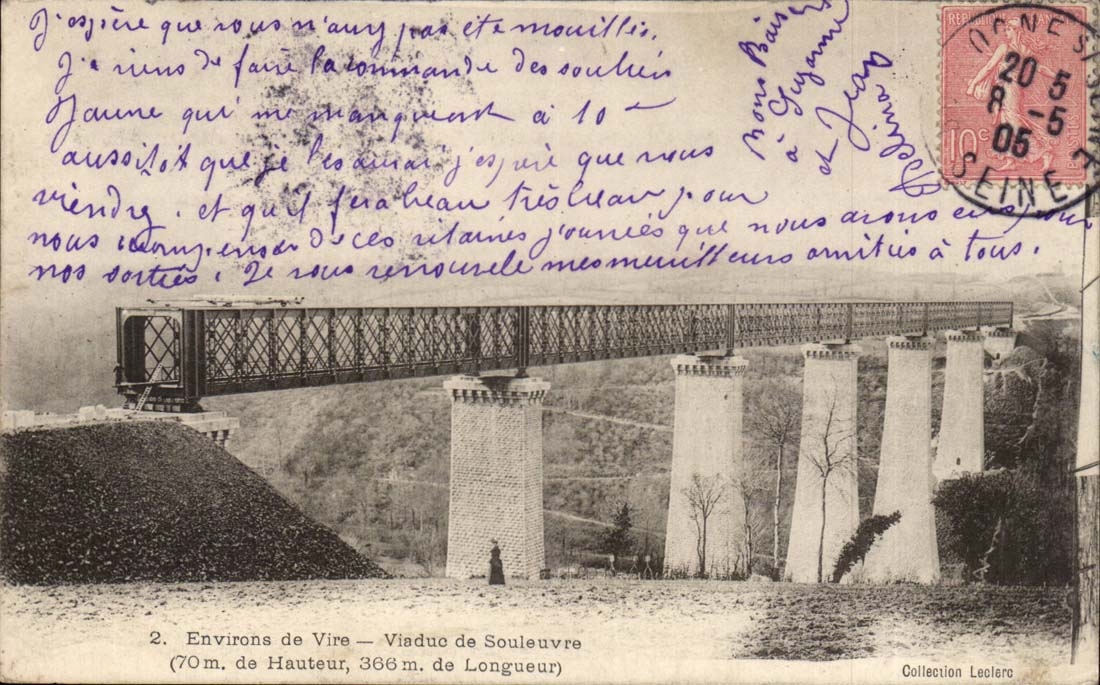 J'espère que vous n'aury pas eté mouillés.
Je viens de faire la commande des souliers
Jaune qui me manquent à 10
aussitôt que je les aurai j'espère que vous
viendrez. et qu'il fera beau très beau pour
nous récompenser de ces vilaines journées que nous avons eus
nos sorties. Je vous renouvele mes meuilleurs amitiés à tous.
Bons Baisers
à Suzanne
et Jean
REPUBLIQUE FRANÇAISE
10c
20 5
8 -5
05
SEINE
2. Environs de Vire — Viaduc de Souleuvre
(70 m. de Hauteur, 366 m. de Longueur)
Collection Leclerc